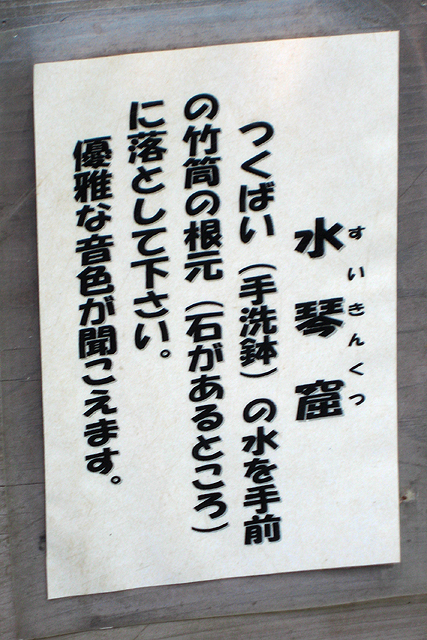 水琴窟
すいきんくつ
つくばい（手洗鉢）の水を手前
の竹筒の根元（石があるところ）
に落として下さい。
優雅な音色が聞こえます。